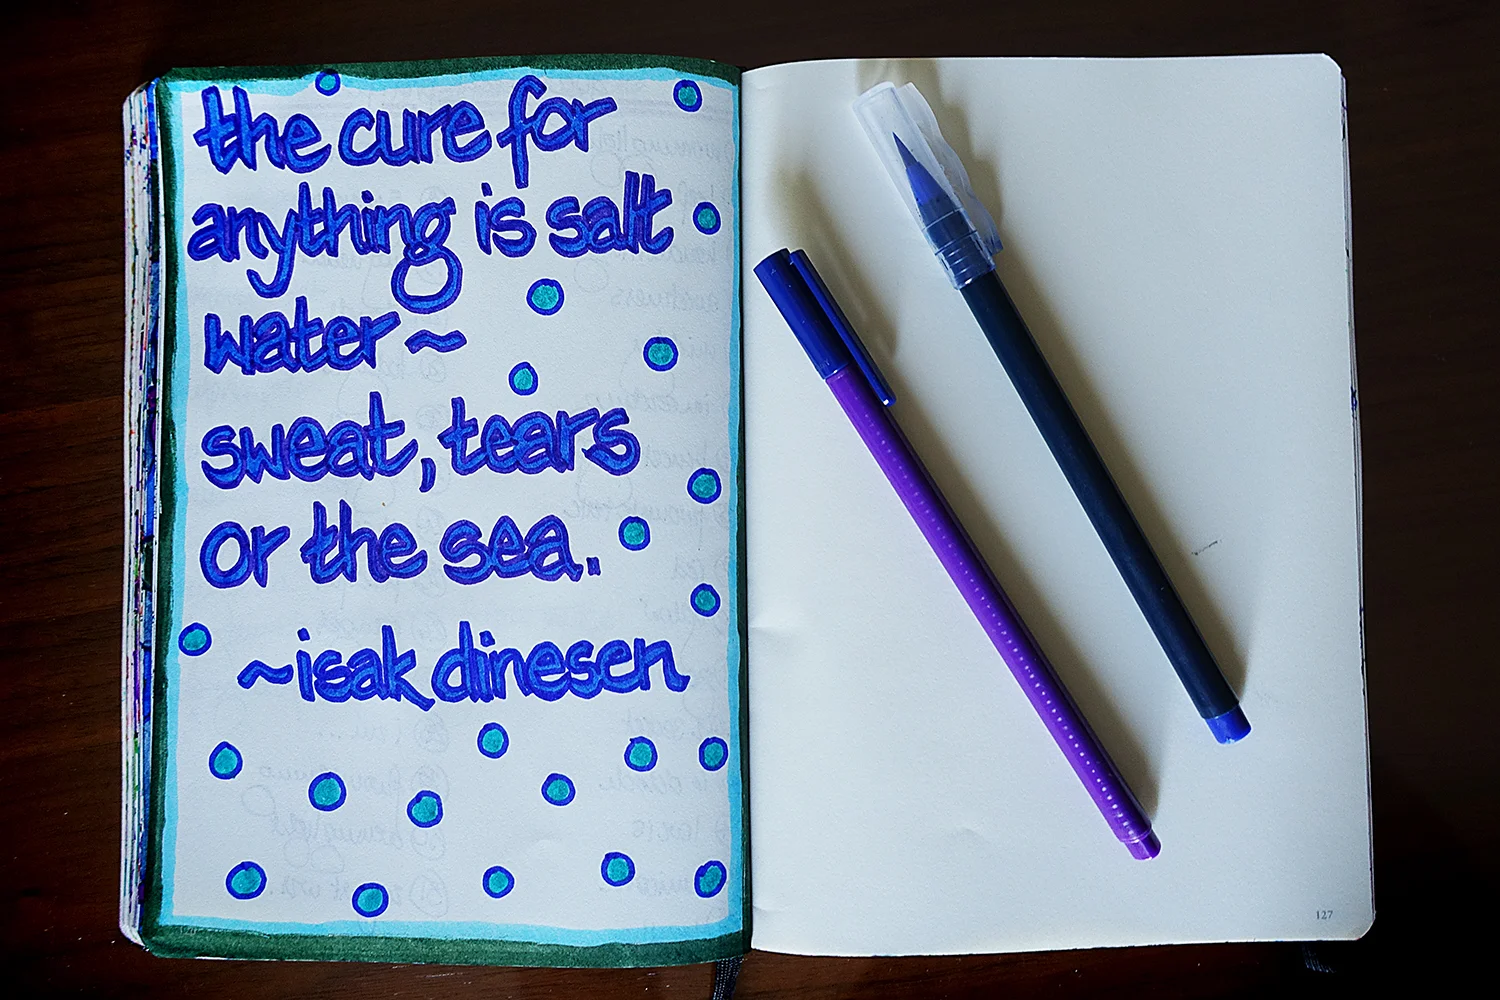 the cure for
anything is salt
water ~
sweat, tears
or the sea.
~isak dinesen
127